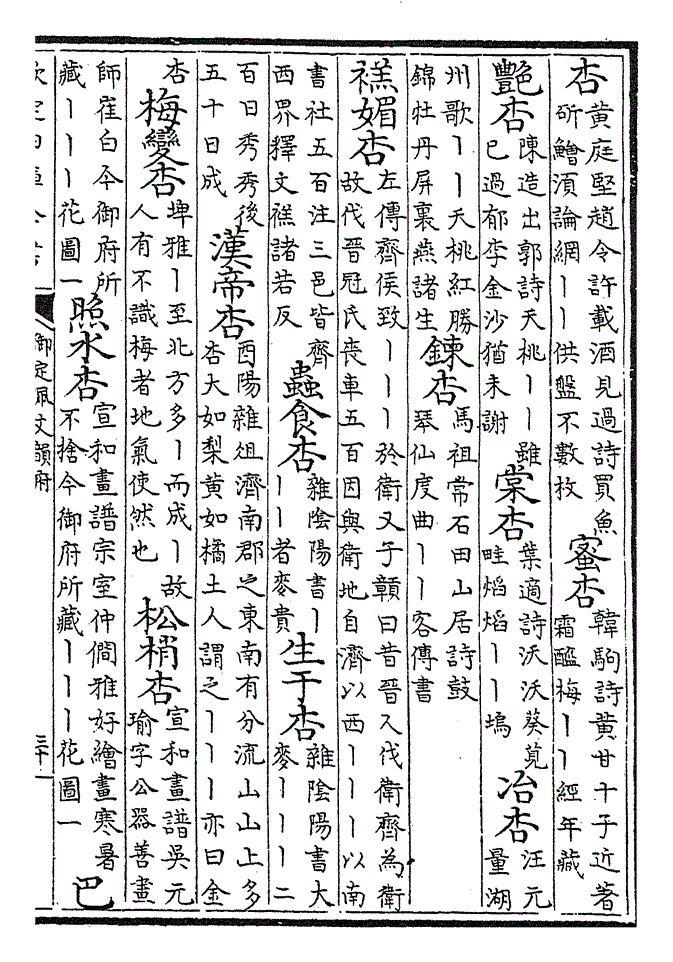 杏 黄庭堅趙令許載酒見過詩買魚斫鱠湏論網丨丨供盤不數枚 蜜杏 韓駒詩黄甘十子近著霜醯梅丨丨經年藏
豔杏 陳造出郭詩夭桃丨丨雖已過郁李金沙猶未謝 棠杏 葉適詩沃沃葵莧畦熖熖丨丨塢 冶杏 汪元量湖
州歌丨丨夭桃紅勝錦牡丹屏裏燕諸生 鍊杏 馬祖常石田山居詩鼓琴仙度曲丨丨客傳書
禚媚杏 左傳齊侯致丨丨丨於衛又子贛曰昔晉人伐衛齊為衛故伐晉冠氏喪車五百因與衛地自濟以西丨丨丨以南
書社五百注三邑皆齊西界釋文禚諸若反 蟲食杏 雜陰陽書丨丨丨者麥貴 生于杏 雜陰陽書大麥丨丨丨二
百日秀秀後五十日成 漢帝杏 酉陽雜俎濟南郡之東南有分流山山上多杏大如梨黄如橘土人謂之丨丨丨亦曰金
杏 梅變杏 埤雅丨至北方多丨而成丨故人有不識梅者地氣使然也 松梢杏 宣和畫譜吳元瑜字公器善畫
師崔白今御府所藏丨丨丨花圖一 照水杏 宣和畫譜宗室仲僩雅好繪畫寒暑不捨今御府所藏丨丨丨花圖一 巴
欽定四庫全書 御定佩文韻府